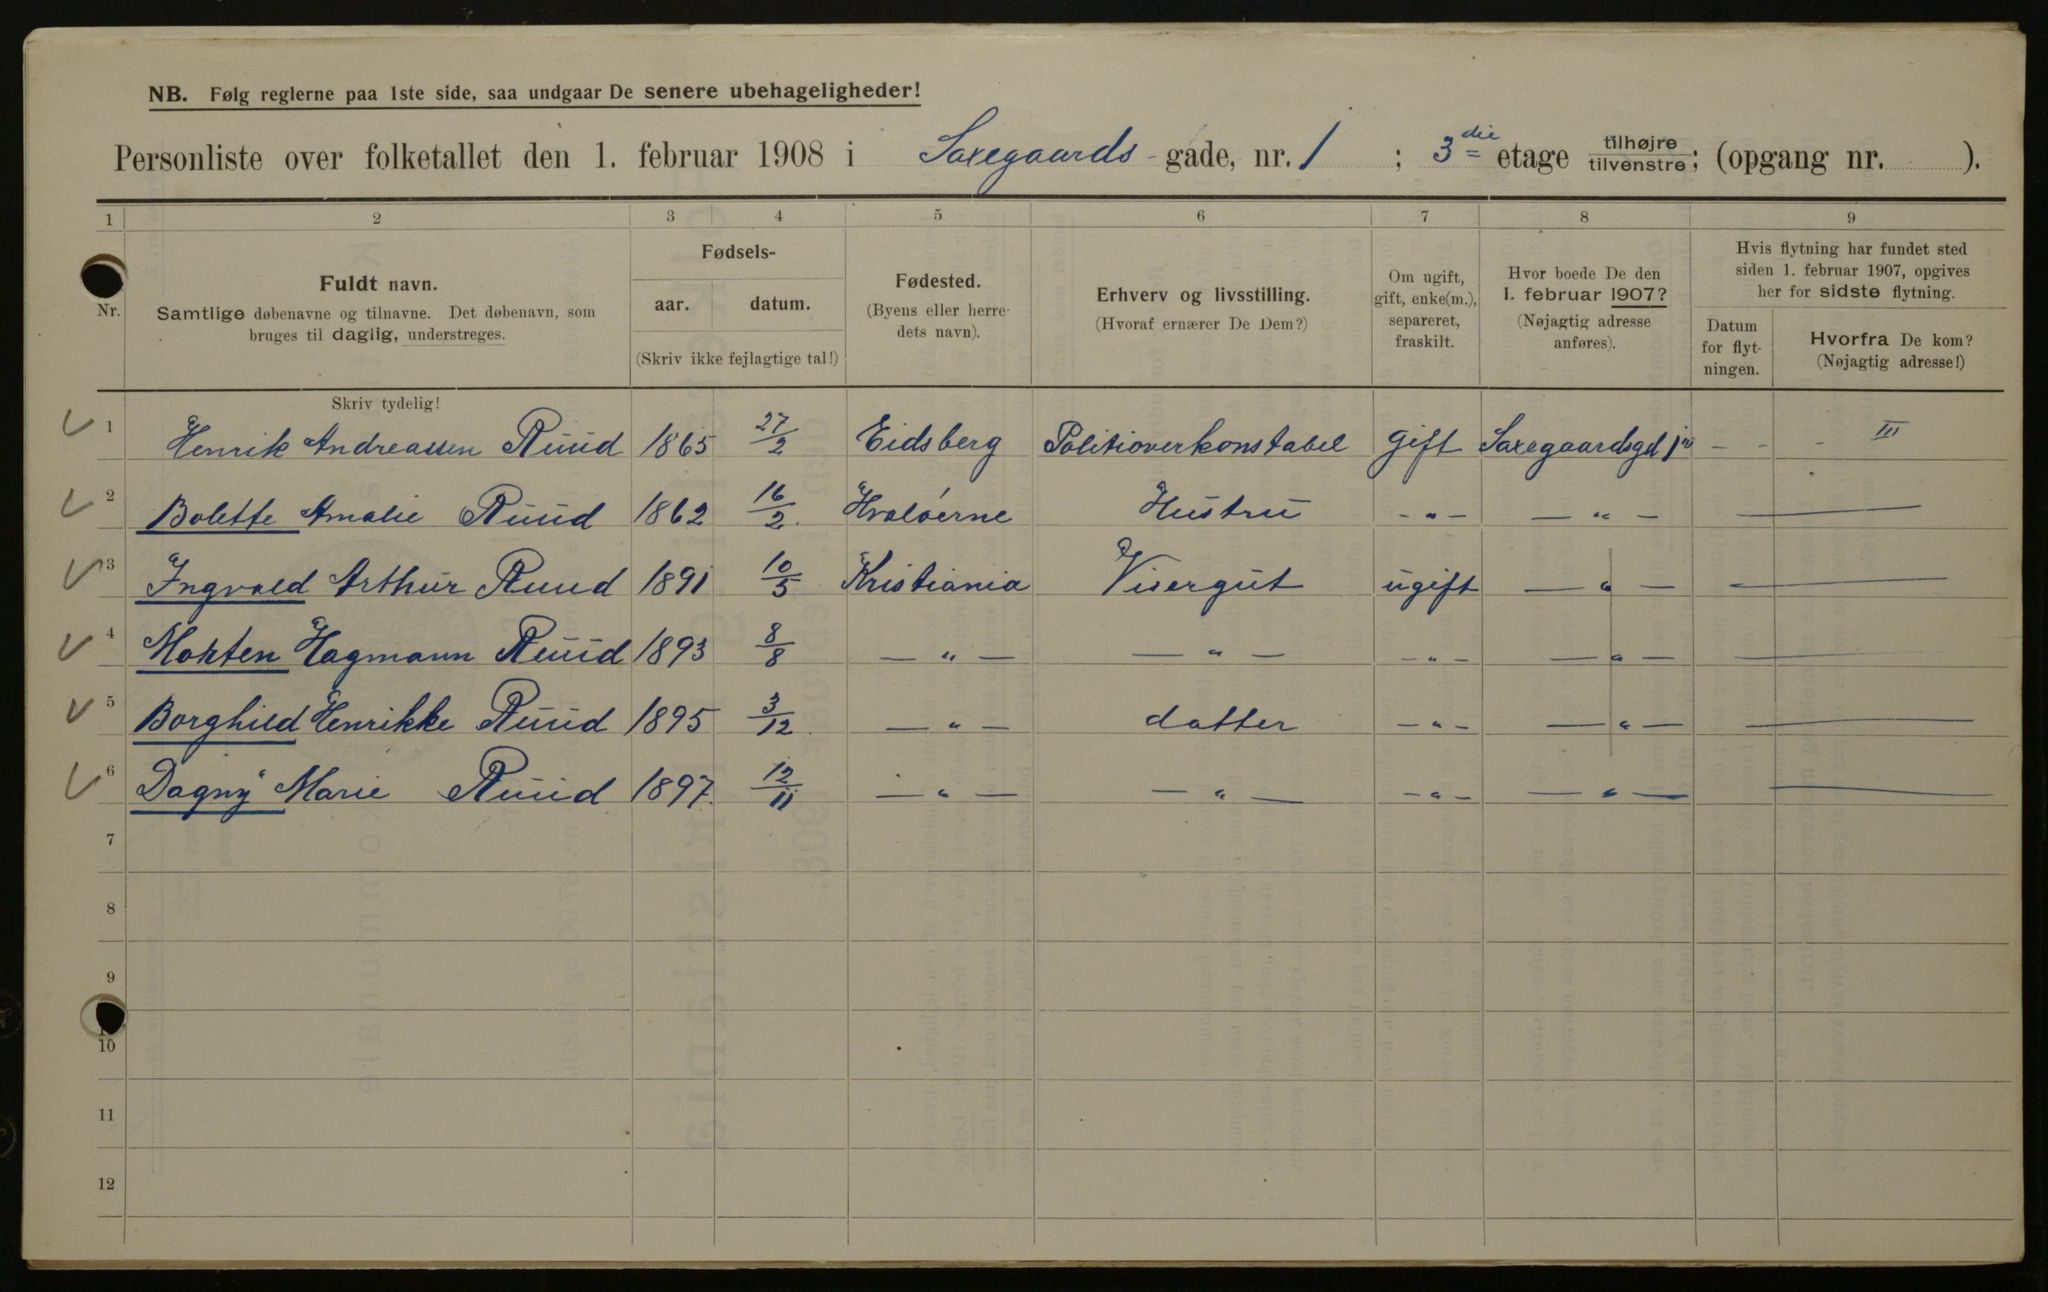 NB. Følg reglerne paa 1ste side, saa undgaar De senere ubehageligheder!
Personliste over folketallet den 1. februar 1908 i Saxegaards-gade, nr. 1 ; 3die etage tilhøjre tilvenstre; (opgang nr. ).
1 2 3 4 5 6 7 8 9
Nr.
Fuldt navn.
Samtlige døbenavne og tilnavne. Det døbenavn, som
bruges til daglig, understreges.
Fødsels-
aar. datum.
(Skriv ikke fejlagtige tal!)
Fødested.
(Byens eller herre-
dets navn).
Erhverv og livsstilling.
(Hvoraf ernærer De Dem?)
Om ugift,
gift, enke(m.),
separeret,
fraskilt.
Hvor boede De den
1. februar 1907?
(Nøjagtig adresse
anføres).
Hvis flytning har fundet sted
siden 1. februar 1907, opgives
her for sidste flytning.
Datum
for flyt-
ningen.
Hvorfra De kom?
(Nøjagtig adresse!)
Skriv tydelig!
1 Henrik Andreassen Ruud 1865 27/2 Eidsberg Politioverkonstabel gift Saxegaardsgd 1 - - - III
2 Bolette Amalie Ruud 1862 16/2 Hvaløerne Hustru -"- -"- —
3 Ingvald Arthur Ruud 1891 10/5 Kristiania Visergut ugift -"- —
4 Morten Hagmann Ruud 1893 8/8 -"- -"- -"- -"- —
5 Borghild Henrikke Ruud 1895 3/12 -"- datter -"- -"- —
6 Dagny Marie Ruud 1897 12/11 -"- -"- -"- -"- —
7
8
9
10
11
12